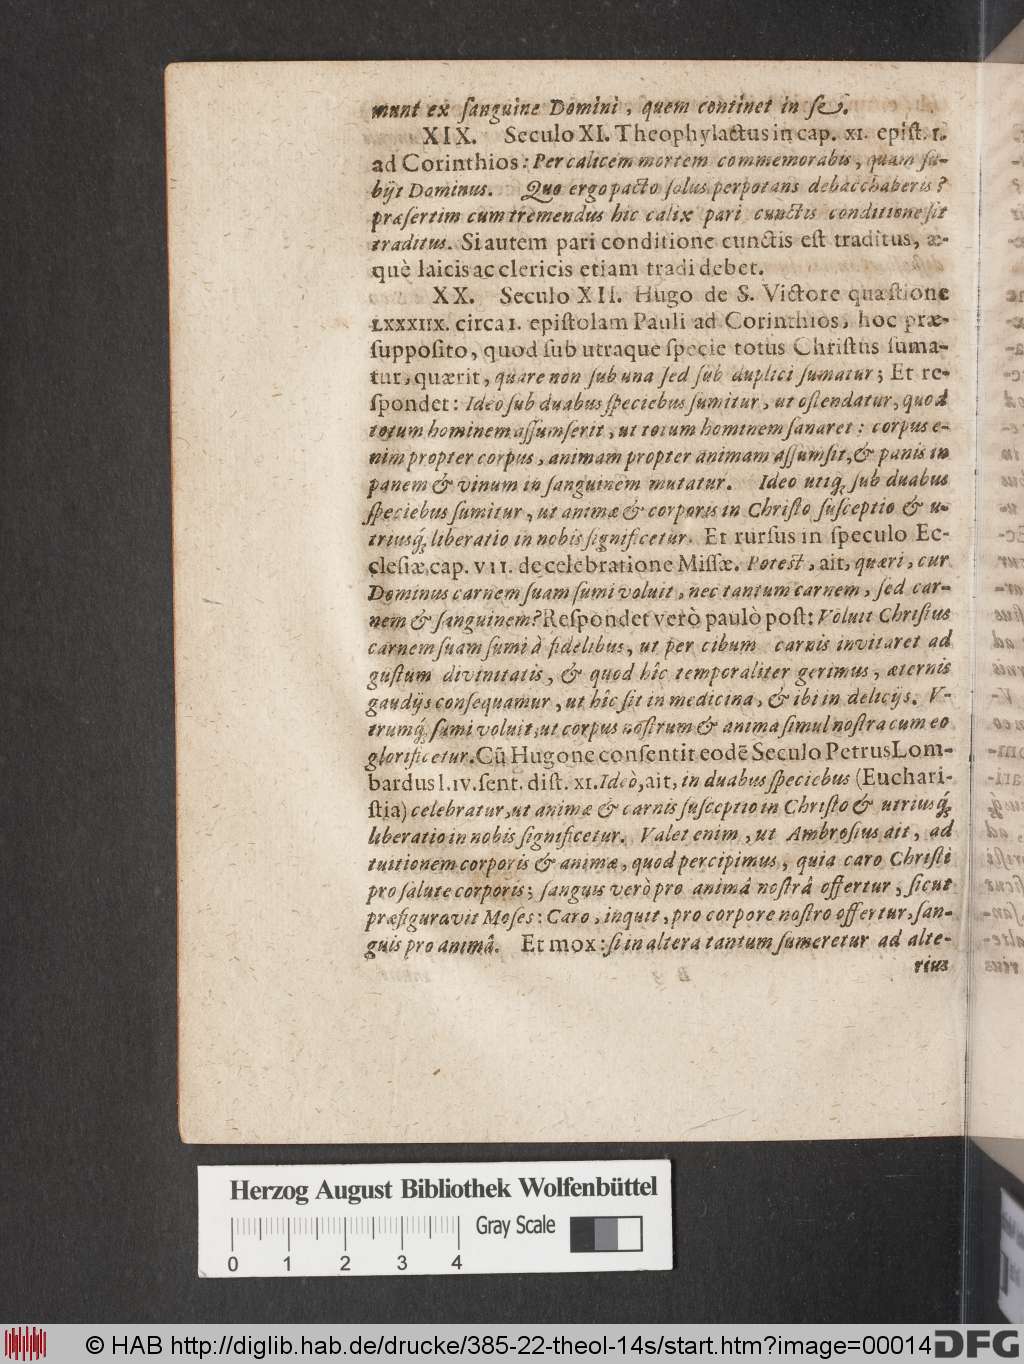 munt ex ſanguine Domini, quem continet in ſe.
XIX. Seculo XI. Theophylactus in cap. XI. epiſt. 1.
ad Corinthios: Per calicem mortem commemorabis, quam ſu-
bijt Dominus. Quo ergo pacto ſolus perpotans debacchaberis?
præſertim cum tremendus hic calix pari cunctis conditione ſit
traditus. Si autem pari conditione cunctis eſt traditus, æ-
què laicis ac clericis etiam tradi debet.
XX. Seculo XII. Hugo de S. Victore quæſtione
LXXXIIX. circa I. epiſtolam Pauli ad Corinthios, hoc præ-
ſuppoſito, quod ſub utraque ſpecie totus Chriſtus ſuma-
tur, quærit, quare non ſub una ſed ſub duplici ſumatur; Et re-
ſpondet: Ideo ſub duabus ſpeciebus ſumitur, ut oſtendatur, quod
totum hominem aſſumſerit, ut totum hominem ſanaret: corpus e-
nim propter corpus, animam propter animam aſſumſit, & panis in
panem & vinum in ſanguinem mutatur. Ideo utiq́; ſub duabus
ſpeciebus ſumitur, ut animæ & corporis in Chriſto ſuſceptio & u-
triusq́; liberatio in nobis ſignificetur. Et rurſus in ſpeculo Ec-
cleſiæ, cap. VII. de celebratione Miſſæ. Poteſt, ait, quæri, cur
Dominus carnem ſuam ſumi voluit, nec tantum carnem, ſed car-
nem & ſanguinem? Reſpondet verò paulò poſt: Voluit Chriſtus
carnem ſuam ſumi à fidelibus, ut per cibum carnis invitaret ad
guſtum divinitatis, & quod hîc temporaliter gerimus, æternis
gaudijs conſequamur, ut hîc ſit in medicina, & ibi in delicijs. V-
trumq́; ſumi voluit, ut corpus noſtrum & anima ſimul noſtra cum eo
glorificetur. Cũ Hugone conſentit eodẽ Seculo Petrus Lom-
bardus l. IV. ſent. diſt. XI. Ideò, ait, in duabus ſpeciebus (Euchari-
ſtia) celebratur, ut animæ & carnis ſuſceptio in Chriſto & utriusq́;
liberatio in nobis ſignificetur. Valet enim, ut Ambroſius ait, ad
tuitionem corporis & animæ, quod percipimus, quia caro Chriſti
pro ſalute corporis; ſanguis verò pro animâ noſtrâ offertur, ſicut
præfiguravit Moſes: Caro, inquit, pro corpore noſtro offertur, ſan-
guis pro animâ. Et mox: ſi in altera tantum ſumeretur ad alte-
rius
Herzog August Bibliothek Wolfenbüttel
Gray Scale
0 1 2 3 4
© HAB http://diglib.hab.de/drucke/385-22-theol-14s/start.htm?image=00014
DFG